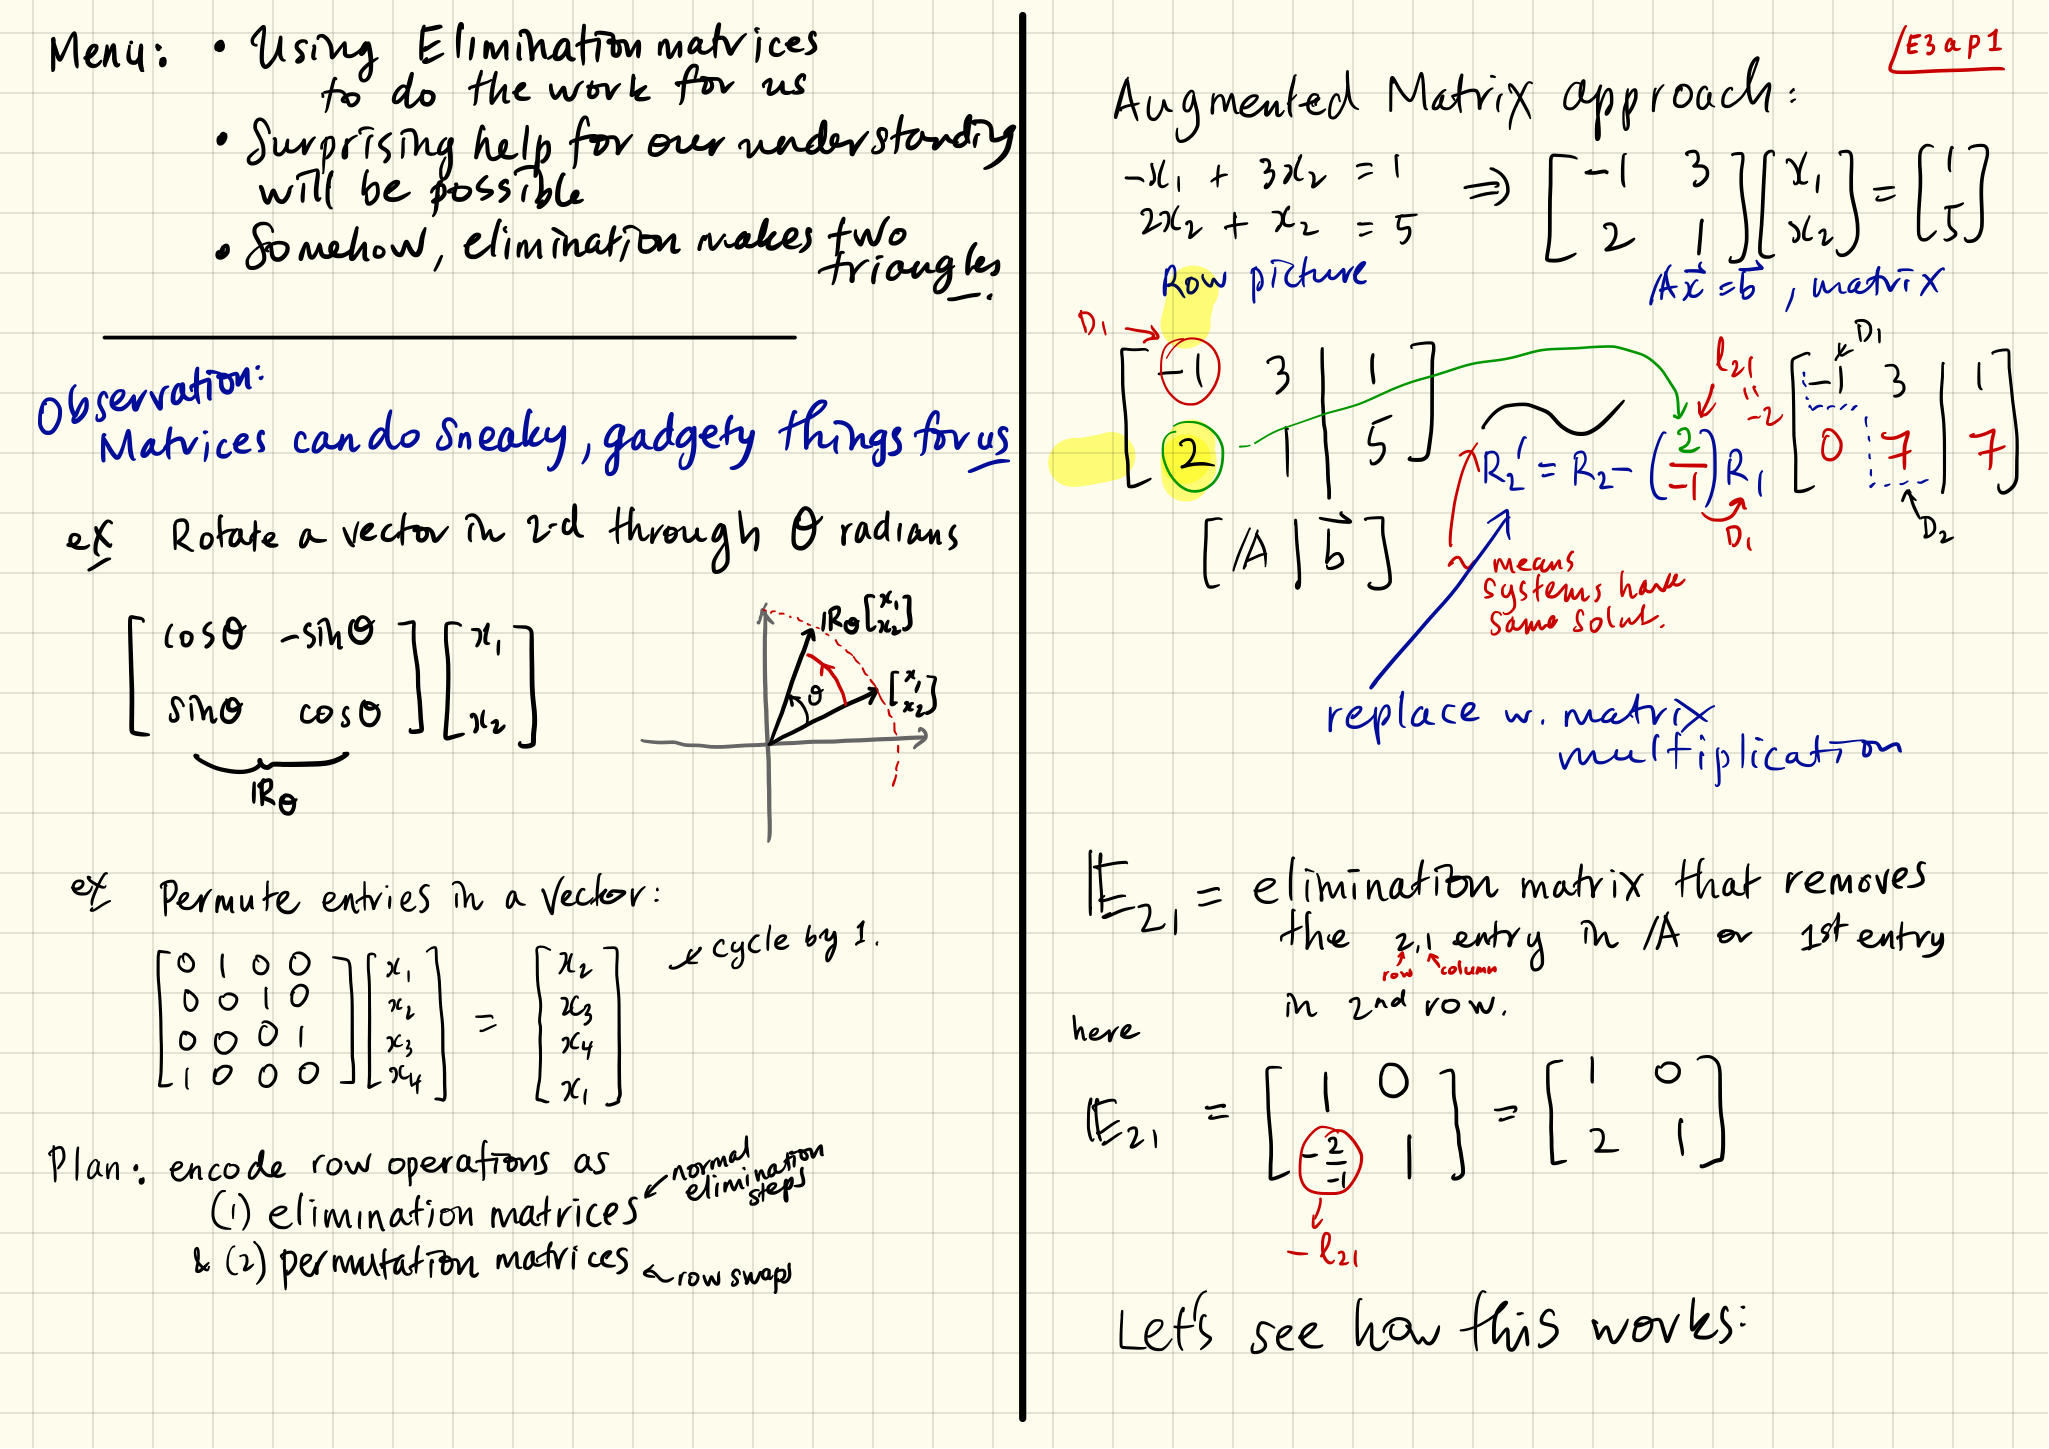 Menu: • Using Elimination matrices
to do the work for us
• Surprising help for our understanding
will be possible
• Somehow, elimination makes two
triangles.
Observation:
Matrices can do sneaky, gadgety things for us
ex Rotate a vector in 2-d through θ radians
[cosθ -sinθ] [x₁]
[sinθ cosθ] [x₂]
ℝθ
ℝθ [x₁ x₂]
θ [x₁ x₂]
ex Permute entries in a vector:
[0 1 0 0] [x₁] [x₂] ↙ cycle by 1.
[0 0 1 0] [x₂] = [x₃]
[0 0 0 1] [x₃] [x₄]
[1 0 0 0] [x₄] [x₁]
Plan: encode row operations as
(1) elimination matrices ← normal elimination steps
& (2) permutation matrices ← row swaps
E3ap1
Augmented Matrix approach:
-x₁ + 3x₂ = 1 ⇒ [-1 3] [x₁] = [1]
2x₂ + x₂ = 5 [2 1] [x₂] [5]
Row picture
Ax⃗ = b⃗, matrix
D₁ → D₁
[-1 3 | 1] l₂₁ = -2 [-1 3 | 1]
[2 1 | 5] ~ R₂' = R₂ - (2/-1) R₁ [0 7 | 7]
D₁ D₂
[A | b⃗]
~ means
systems have
same solut.
replace w. matrix
multiplication
E₂₁ = elimination matrix that removes
the 2,1 entry in A or 1st entry
row column
in 2nd row.
here
E₂₁ = [1 0] = [1 0]
[-2/-1 1] [2 1]
-l₂₁
Let's see how this works: